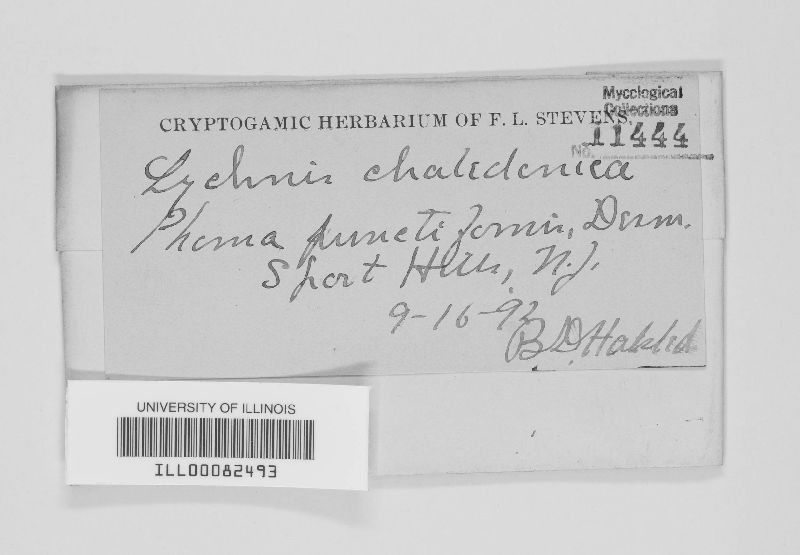 Mycological
Collections
CRYPTOGAMIC HERBARIUM OF F. L. STEVENS.
No. 11444
Lychnis chalcedonica
Phoma punctiformis, Desm.
Short Hills, N.J.
9-16-92
B.D. Halsted
UNIVERSITY OF ILLINOIS
ILL00082493